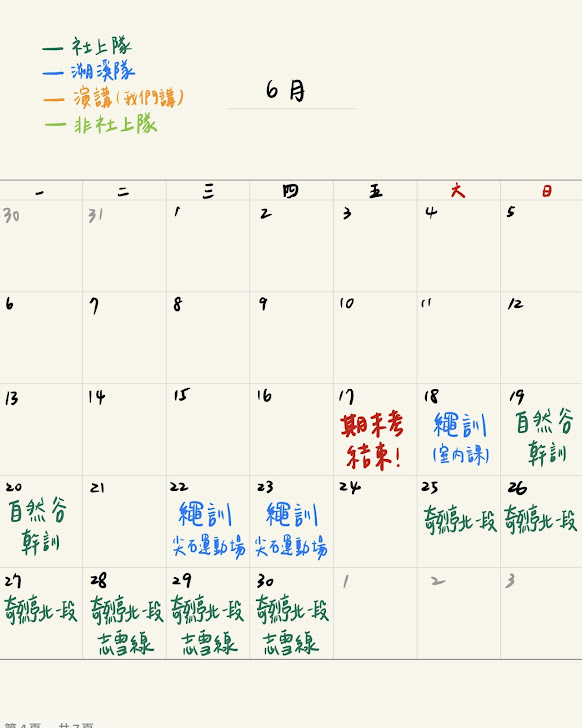 社上隊
溯溪隊
演講(我們講)
非社上隊
6月
一 二 三 四 五 六 日
30 31 1 2 3 4 5
6 7 8 9 10 11 12
13 14 15 16 17 18 19
期末考
結束!
繩訓
(室內課)
自然谷
幹訓
20 21 22 23 24 25 26
自然谷
幹訓
繩訓
尖石運動場
繩訓
尖石運動場
奇烈亭北一段
奇烈亭北一段
27 28 29 30 1 2 3
奇烈亭北一段
奇烈亭北一段
志雪線
奇烈亭北一段
志雪線
奇烈亭北一段
志雪線